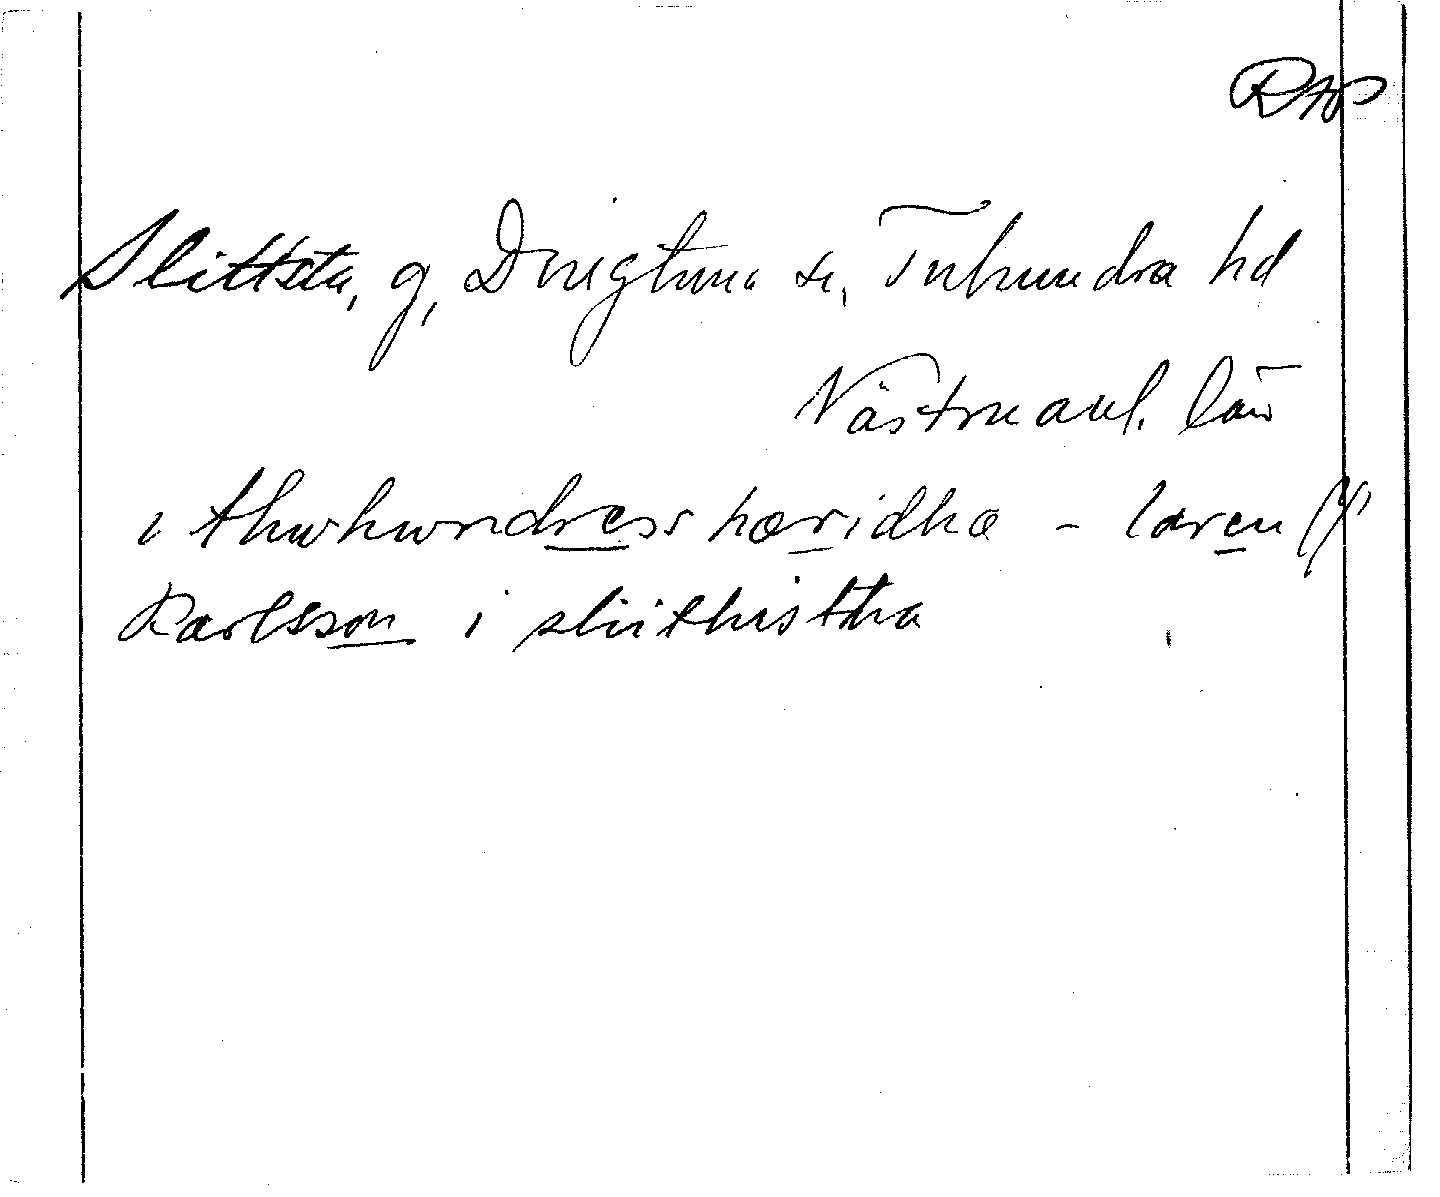 RAP
Slittsta, g, Dingtuna sn, Tuhundra hd
Västmanl. län
i thwhwndress hæridha - laren (?)
Karlsson i sliithistha